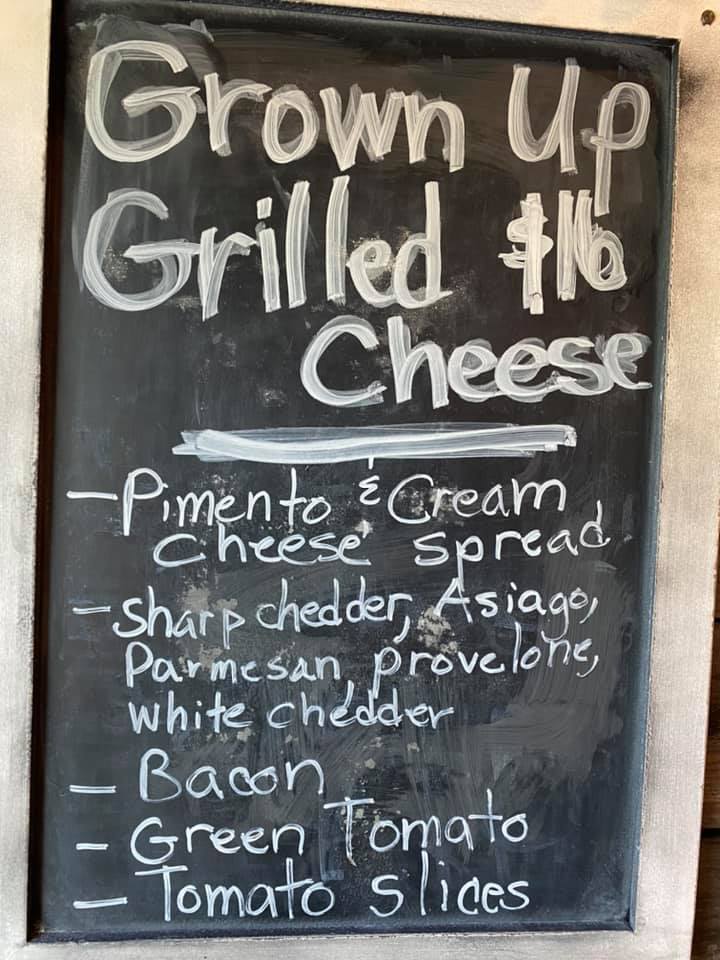 Grown Up
Grilled $16
Cheese
- Pimento & Cream
cheese spread
- Sharp chedder, Asiago,
Parmesan, provelone,
white chedder
- Bacon
- Green Tomato
- Tomato slices